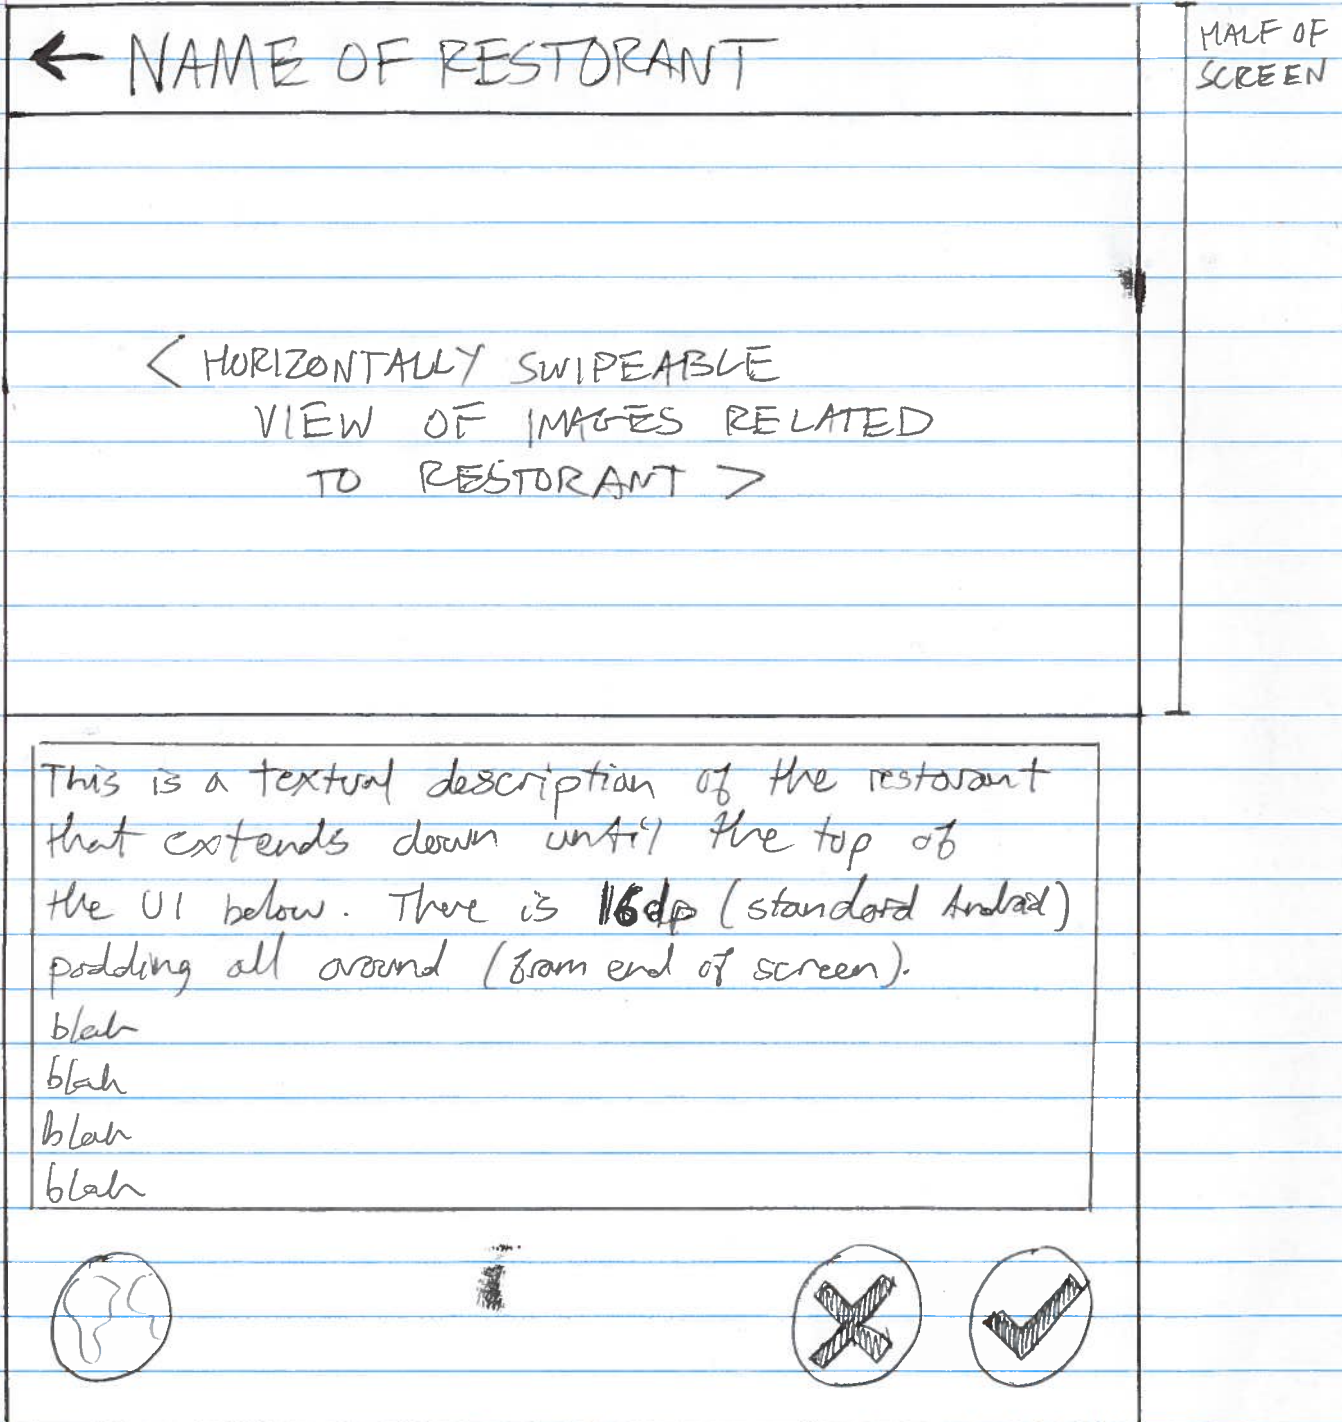 ← NAME OF RESTORANT
HALF OF
SCREEN
< HORIZONTALLY SWIPEABLE
VIEW OF IMAGES RELATED
TO RESTORANT >
This is a textual description of the restorant
that extends down until the top of
the UI below. There is 16dp (standard Android)
padding all around (from end of screen).
blah
blah
blah
blah